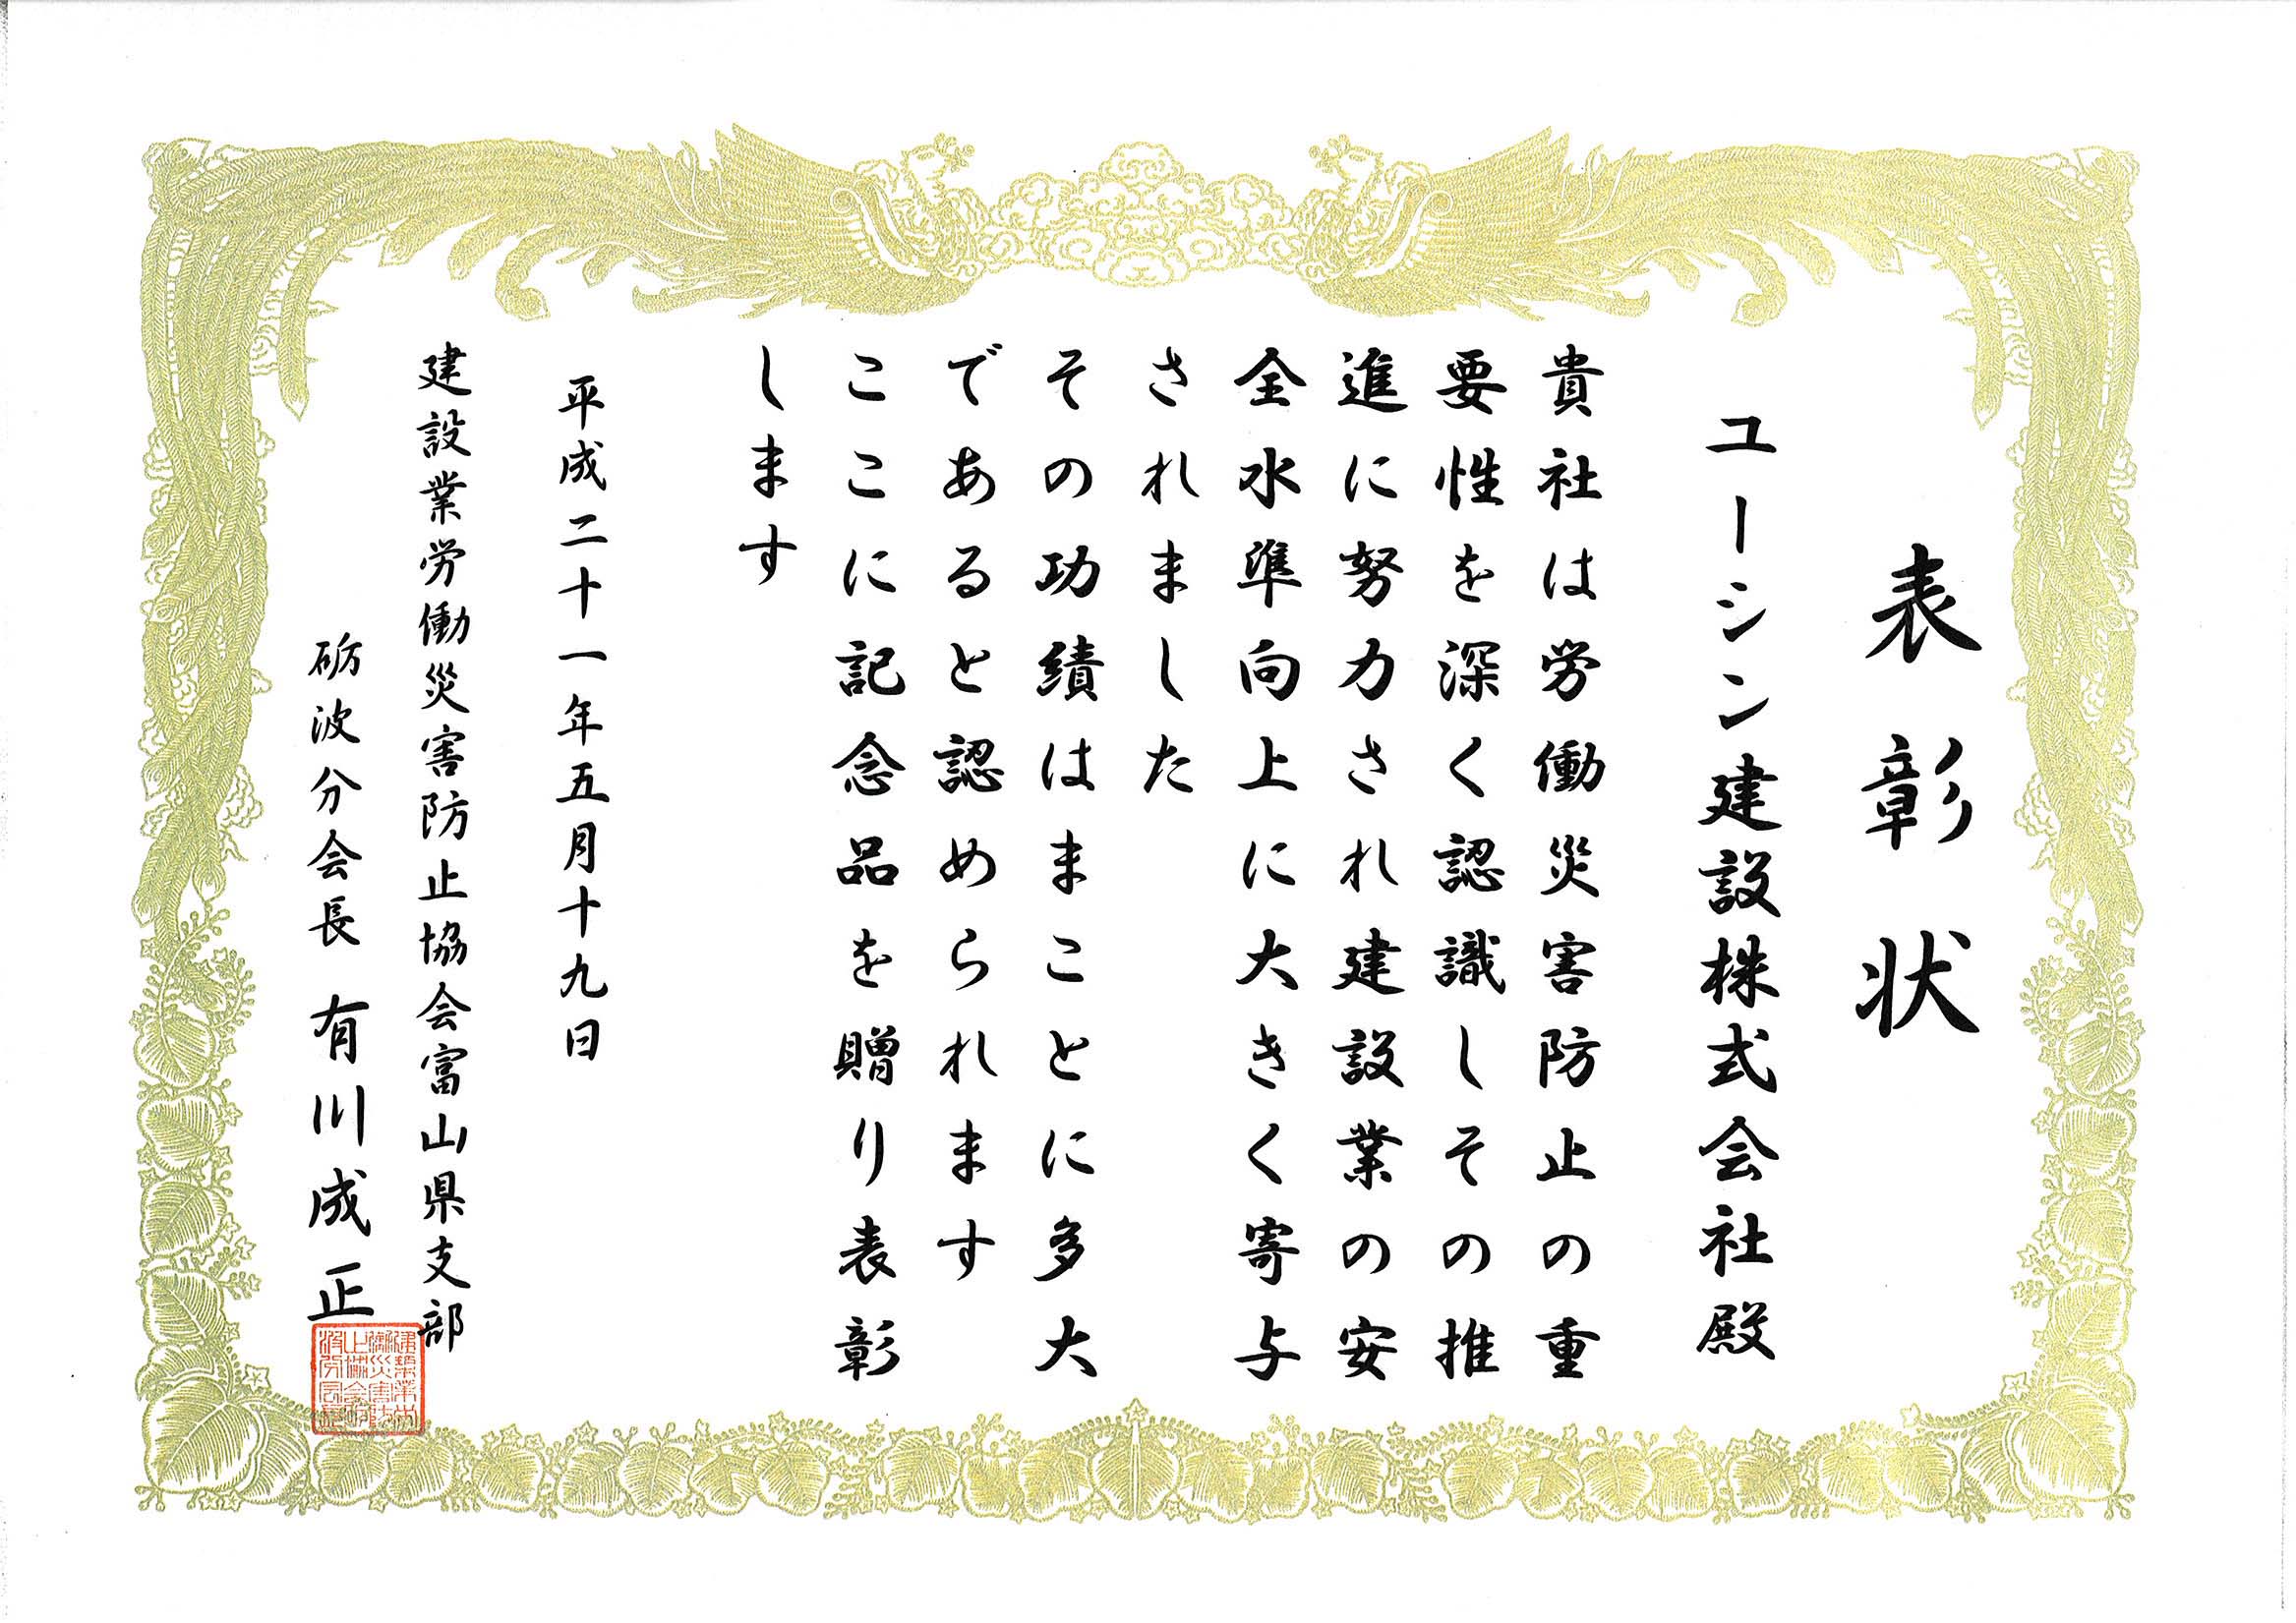 表彰状
ユーシン建設株式会社殿
貴社は労働災害防止の重
要性を深く認識しその推
進に努力され建設業の安
全水準向上に大きく寄与
されました
その功績はまことに多大
であると認められます
ここに記念品を贈り表彰
します
平成二十一年五月十九日
建設業労働災害防止協会富山県支部
砺波分会長 有川成正